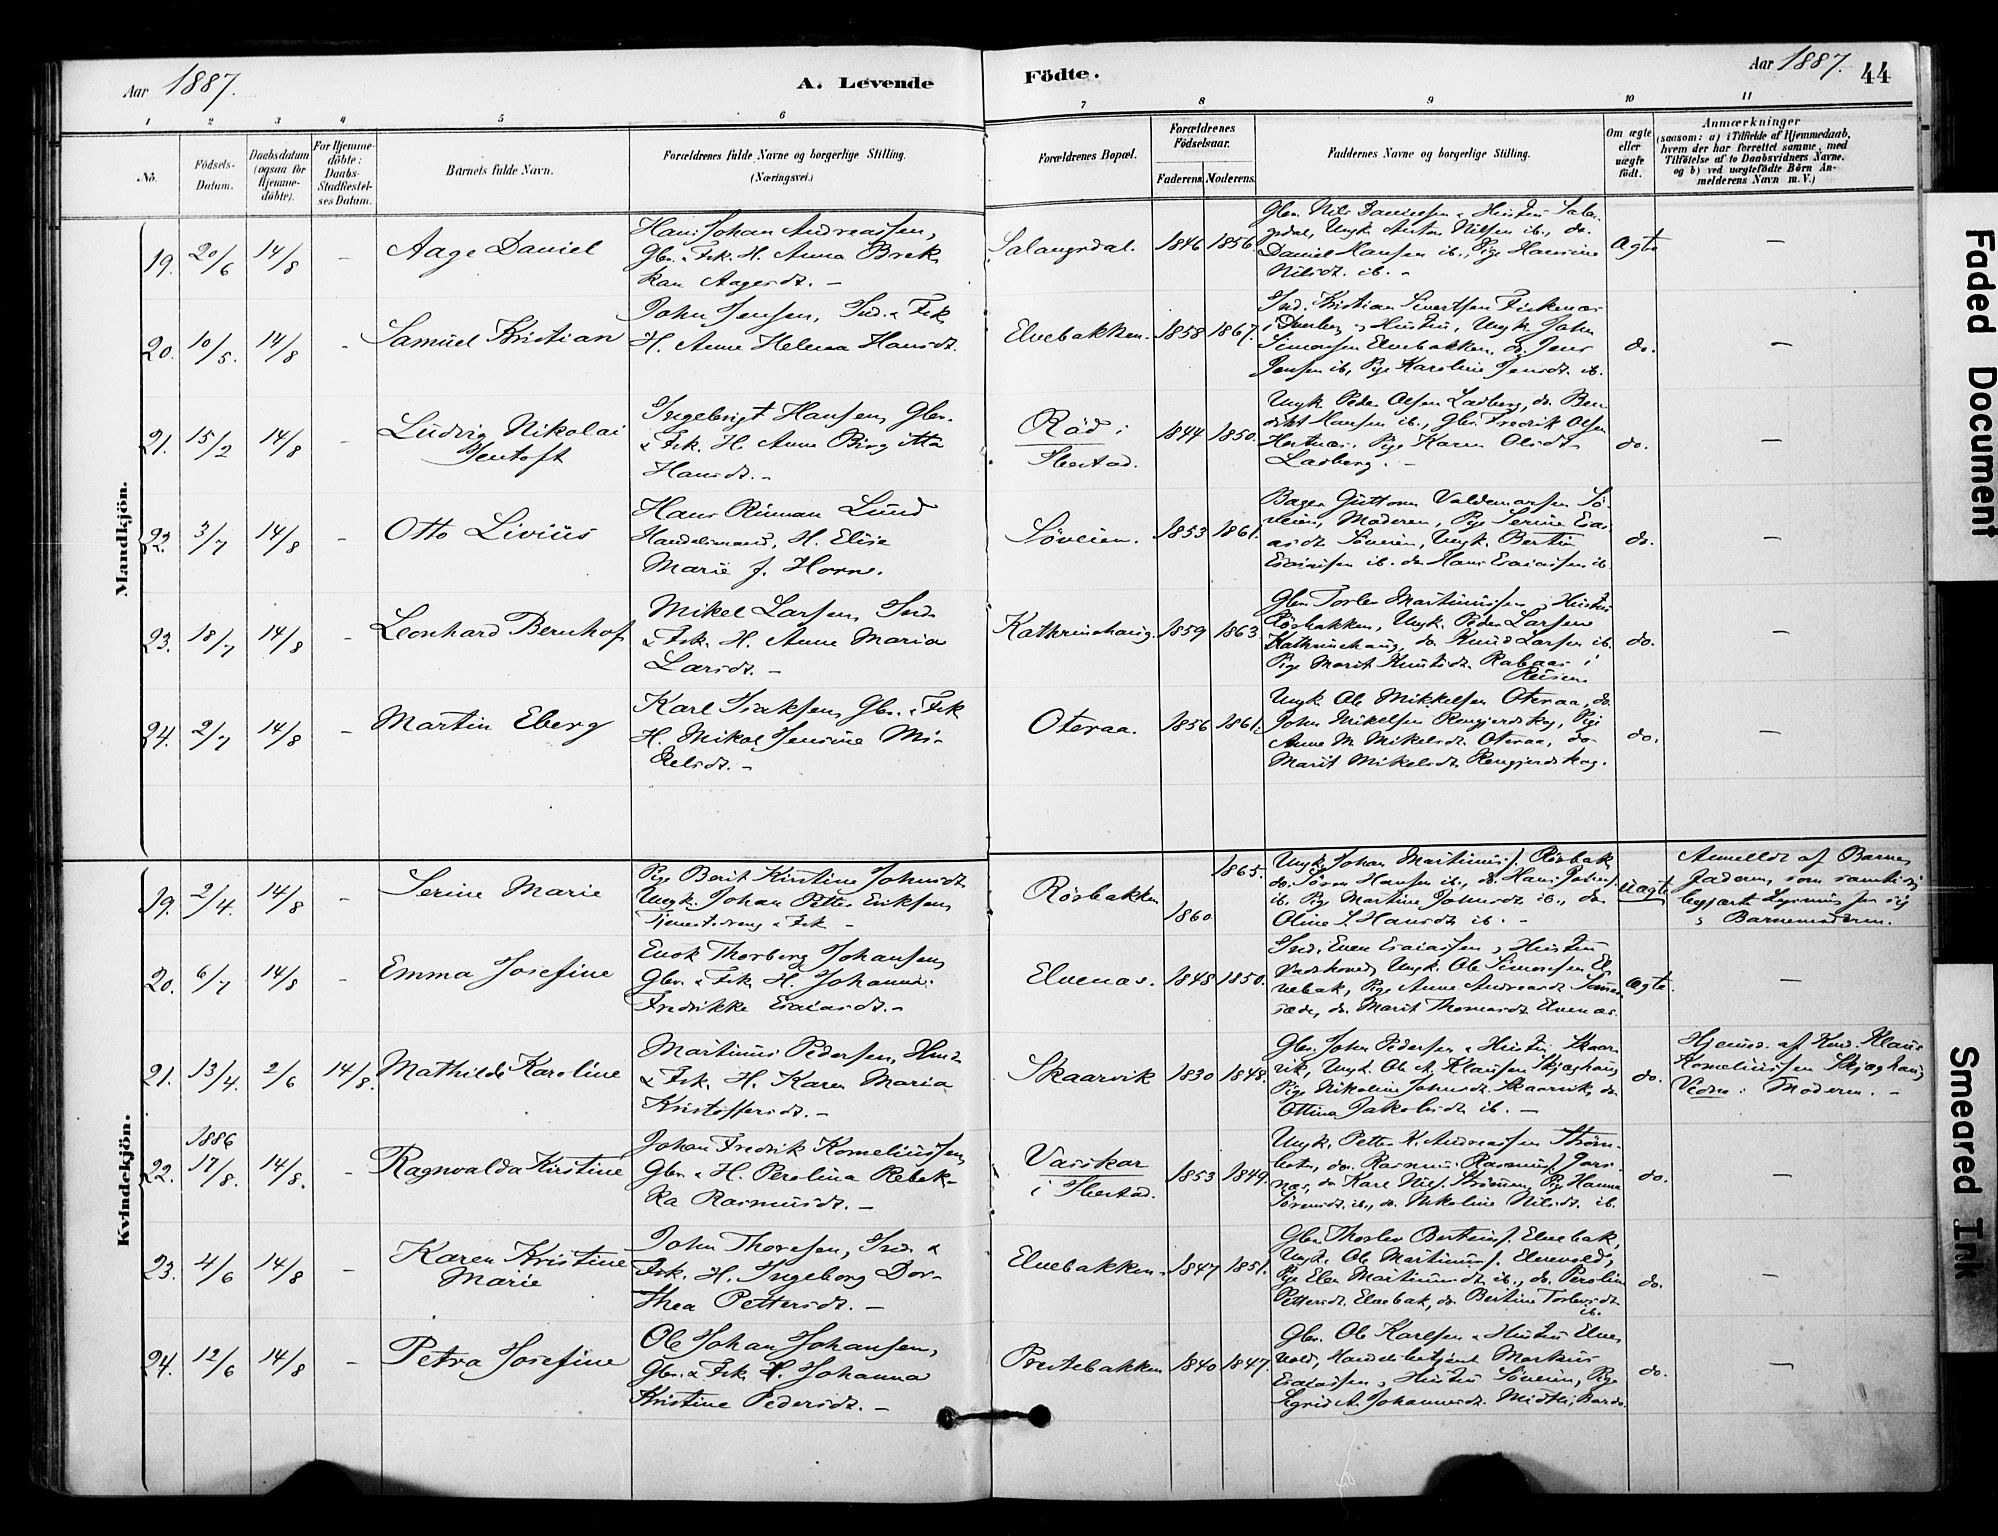 Aar 1887.
A. Levende
Födte.
Aar 1887.
44
1 2 3 4 5 6 7 8 9 10 11
No.
Födsels-
Datum.
Daabsdatum
(ogsaa for
Hjemme-
döbte).
For Hjemme-
döbte:
Daabs-
Stadfæstel-
ses Datum.
Barnets fulde Navn.
Forældrenes fulde Navne og borgerlige Stilling.
(Næringsvei.)
Forældrenes Bopæl.
Forældrenes
Födselsaar.
Faderens. Moderens.
Faddernes Navne og borgerlige Stilling.
Om ægte
eller
uægte
födt.
Anmærkninger
(saasom: a) i Tilfælde af Hjemmedaab,
hvem der har forrettet samme, med
Tilföielse af to Daabsvidners Navne,
og b) ved uægtefödte Börn An-
melderens Navn m. V.)
Mandkjön.
19. 20/6 14/8 - Aage Daniel
Hans Johan Andreassen,
Gbr. & Fsk. H. Anna Brek
kan Aagesdt. -
Salangsdal. 1846 1856.
Gbr. Nils Danielsen & Hustru Salan
gsdal, Ungk. Anton Nilsen ib., do.
Daniel Hansen ib., Pige Hansine
Nilsdt. ib. -
Ægte -
20. 10/5. 14/8 - Samuel Kristian
John Jensen, Ind. & Fsk.
H. Anne Helena Hansdt.
Elvebakken. 1858 1867.
Ind. Kristian Sivertsen Fiskenæs
i Dverberg & Hustru, Ungk. John
Simonsen Elvebakken, do. Jens
Jensen ib., Pige Karoline Jensdt. ib.
do. -
21. 15/2 14/8 - Ludvig Nikolai
Jentoft
Ingebrigt Hansen, Gbr.
& Fsk. H. Anne Birgitta
Hansdt. -
Röd i
Ibestad. 1844 1850.
Ungk. Peder Olsen Ladberg, do. Ben
dikt Hansen ib., Gbr. Fredrik Olsen
Hertnæs, Pige Karen Olsdt.
Ladberg. -
do. -
22. 3/7 14/8 - Otto Livius
Hans Rieman Lund
Handelsmand, H. Elise
Marie f. Horne.
Søveien. 1853 1861.
Bager Guttorm Valdemarsen Sö-
veien, Moderen, Pige Serine Esai
asdt. Søveien, Ungk. Bertin
Esaiassen ib. do Hans Esaiassen ib.
do. -
23. 18/7 14/8 - Leonhard Bernhof
Mikel Larsen, Ind.
& Fsk. H. Anne Maria
Larsdt. -
Kathrinehaug. 1859 1863
Gbr. Torlev Martinussen & Hustru
Rösbakken, Ungk. Peder Larsen
Kathrinehaug, do. Knud Larsen ib.
Pige Marit Knutsdt. Rabaas i
Reisen
do. -
24. 2/7 14/8 - Martin Eberg
Karl Isaksen, Gbr. & Fsk
H. Mikal Jensine Mi-
kelsdt. -
Oteraa. 1856 1861.
Ungk. Ole Mikkelsen Oteraa, do.
John Mikelsen Rengjerdskog, Pige
Anne M. Mikelsdt. Oteraa, do
Marit Mikelsdt Rengjerdskog.
do. -
Kvindekjön.
19. 2/4. 14/8 - Serine Marie
Pige Berit Kirstine Johnsdt.
Ungk. Johan Petter Eriksen,
Tjenestedreng & Fsk -
Rösbakken 1860 1865.
Ungk. Johan Martinus. Rösbak,
do. Sören Hansen ib., do. Hans Johns.
ib. Pige Martine Johnsdt. ib., do.
Oline S. Hansdt ib. -
uægte
Anmeldt af Barne
faderen, som samtidig
begjærte Lysning for sig
& Barnemoderen.
20. 6/7 14/8 - Emma Josefine
Enok Thorberg Johansen,
Gbr. & Fsk. H. Johanna
Fredrikke Esaiasdt. -
Elvenæs. 1848 1850.
Ind. Even Esaiassen & Hustru
Ungk. Ole Simonsen El
vebak, Pige Anne Andreasdt
do. Marit Thomasdt Elvenæs.
ægte. -
21. 13/4. 2/6 14/8. Mathilde Karoline
Martinus Pedersen, Ind.
& Fsk. H. Karen Maria
Kristoffersdt. -
Skaarvik 1830 1848.
Gbr. John Pedersen & Hustru Skaar
vik, Ungk. Ole A. Klausen Skjæghaug
Pige Nikoline Johnsdt. Skaarvik, do.
Ottina Jakobsdt ib. -
do.
Hjemd. af Klaus
Korneliussen Skjæghaug
Vidne: Moderen. -
22. 1886 17/8. 14/8. - Ragnvalda Kirstine
Johan Fredrik Korneliussen,
Gbr. & H. Perolina Rebek-
ka Rasmusdt. -
Vasskar
i Ibestad. 1853 1849.
Ungk. Petter K. Andreassen Ström-
boten, do. Rasmus Rasmus.
næs, do Karl Niels. Strömmen, Pige Hanna
Sörensdt. ib., do. Nikoline Nilsdt. ib.
do. -
23. 4/6 14/8 - Karen Kristine
Marie
John Thoresen, Ind. &
Fsk. H. Ingeborg Dor-
thea Pettersdt. -
Elvebakken. 1847 1851.
Gbr. Thorlev Bertinus. Elvebak,
Ungk. Ole Martinus. Elvevold,
Pige Elen Martinusdt. ib., do. Peroline
Pettersdt. Elvebak, do. Bertine Torlevsdt
ib.
do. -
24. 12/6 14/8 - Petra Josefine
Ole Johan Johansen,
Gbr. & Fsk. H. Johanna
Kristine Pedersdt. -
Prestebakken 1840 1847
Gbr. Ole Karlsen & Hustru Elve
vold, Handelsbetjent Markus
Esaiassen & Hustru Söveien, Pige
Sigrid A. Johannesdt. Midtli, Bardo.
do. -
Faded Document
Smeared Ink